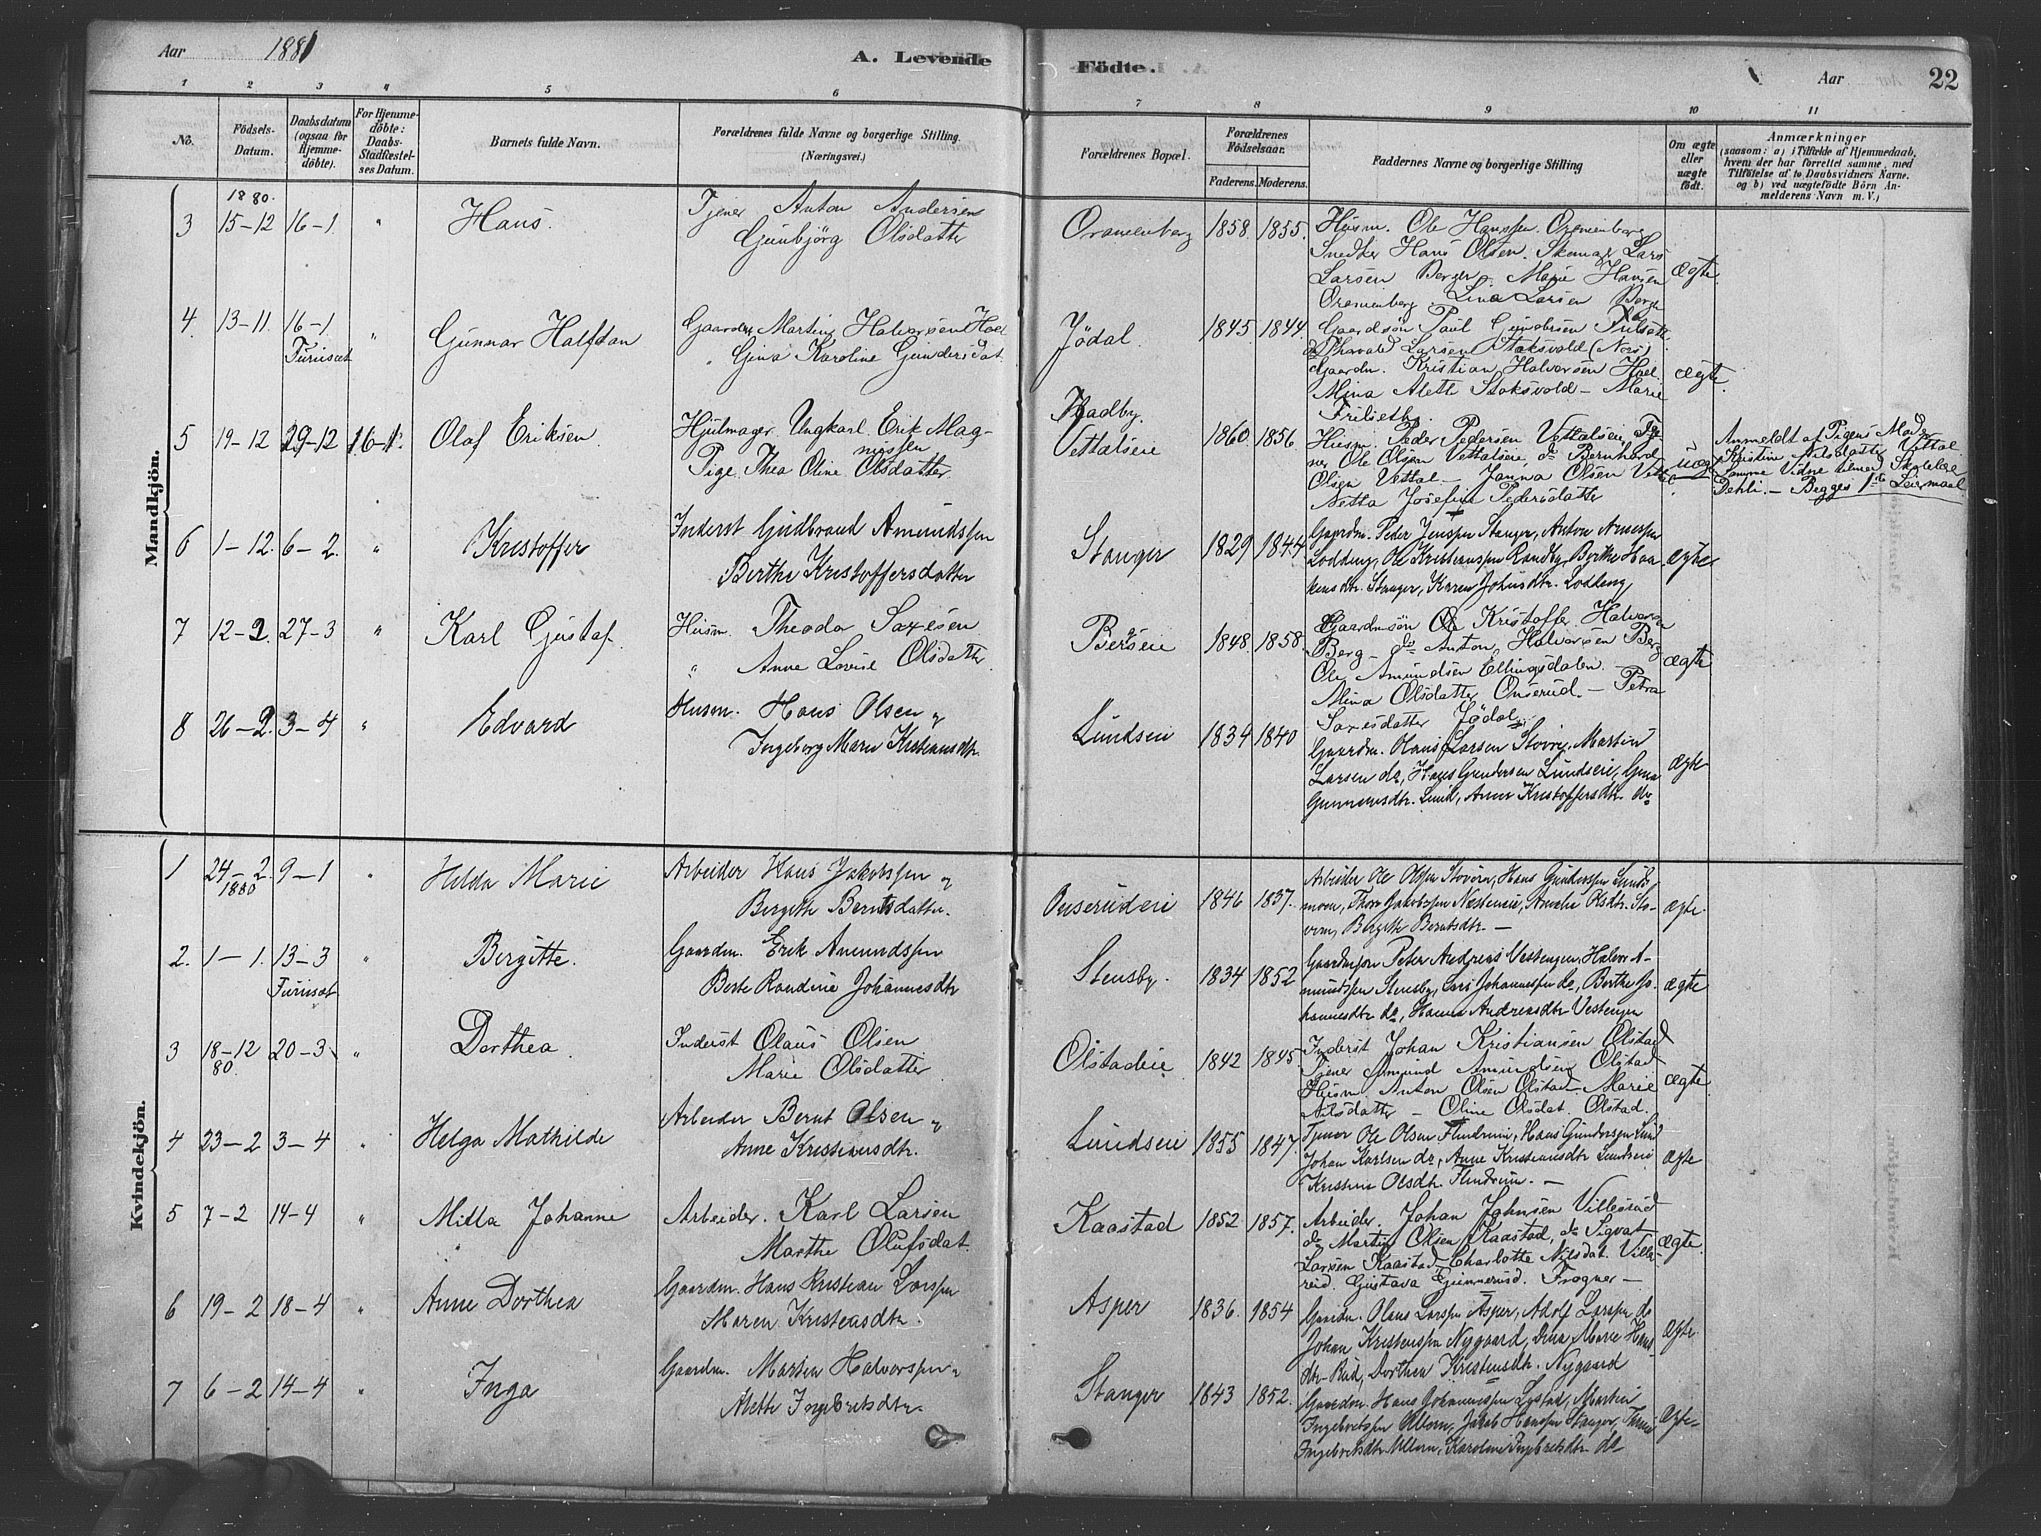 Aar 1881 A. Levende Födte. Aar 22
1 2 3 4 5 6 7 8 9 10 11
No.
Födsels-Datum.
Daabsdatum (ogsaa for Hjemme-döbte).
For Hjemme-döbte: Daabs-Stadfæstel-ses Datum.
Barnets fulde Navn.
Forældrenes fulde Navne og borgerlige Stilling. (Næringsvei.)
Forældrenes Bopæl.
Forældrenes Födselsaar.
Faderens. Moderens.
Faddernes Navne og borgerlige Stilling
Om ægte eller uægte födt.
Anmærkninger
(saasom: a) i Tilfælde af Hjemmedaab,
hvem der har forrettet samme, med
Tilföielse af to Daabsvidners Navne.
og b) ved uægtefödte Börn An-
melderens Navn m. V.)
Mandkjön.
1880.
3 15-12 16-1 " Hans. Tjener Anton Andersen
Gunbjörg Olsdatter
Oranienberg 1858. 1855.
Husm. Ole Hanssen Oranienberg
Snedker Hans Olsen. Skomag Lars
Larsen Berger. Marie Hansen
Oranienberg Lina Larsen Berge
ægte.
4 13-11. 16-1 Furuset " Gunnar Halfdan
Gaardm. Martin Halvorsen Hoel
" Gina Karoline Gundersdat.
Jödal. 1845 1844.
Gaardsön Paul Gundersen
do Thorvald Larsen Stoksvold (Næs)
Gaardm. Kristian Halvorsen Hoel
Mina Alette Stoksvold - Marie
ægte.
5 19-12 29-12 16-1. Olaf Eriksen
Hjulmager Ungkarl Erik Mag-
nissen
Pige Thea Oline Olsdatter
Kadby.
Vettalseie 1860. 1856
Husm. Peder Pedersen Vettalseie, Tje-
ner Ole Olsen Vettalseie, do Bernhard
Olsen Vettal - Janna Olsen Vettal
Netta Josefine Pedersdatter
uægte
Anmeldt af Pigens Moder
Kristine Nilsdatter Vettal
Samme Vidne tilmed Skolelær
Dehli. - Begges 1ste Leiermaal
6 1-12. 6-2. " Kristoffer
Inderst Gudbrand Amundssen
Berthe Kristoffersdatter
Stanger 1829 1844.
Gaardm. Peder Jenssen Stanger, Anton Anderssen
Lodding, Ole Kristianssen Randby, Berthe Haa-
kensdtr. Stanger, Karen Johnsdtr. Lodding
ægte
7 12-2. 27-3 " Karl Gustaf.
Husm. Theodor Saxesen
" Anne Lovise Olsdatter
Bergseie 1848. 1858.
Gaardmsön Ole Kristoffer Halvorsen
Berg - do Anton Halvorsen Berg
Ole Amundsen Ellingsdalen
Mina Olsdatter Onserud. - Petra
Saxesdatter Jödal
ægte
8 26-2. 3-4 " Edvard
Husm. Hans Olsen "
Ingeborg Marie Kristiansdtr.
Lundseie 1834 1840
Gaardm. Olaus Larsen Stovre, Martin
Larsen do, Hans Gundersen Lundseie, Gina
Gunnarsdtr. Lund, Anne Kristoffersdtr. do
ægte
Kvindekjön.
1 24-2. 1880 9-1 " Helda Marie
Arbeider Hans Jakobssen "
Bergitte Berntsdatter.
Onserudeie 1846 1837.
Arbeider Ole Olssen Stovern, Hans Gunderssen Lunds
moen, Thor Jakobssen Næsteneie, Amalie Olsdtr. Sto-
vern, Bergitte Berntsdtr. -
ægte.
2. 1-1. 13-3 Furuset " Bergitte.
Gaardm. Erik Amundssen
Berte Randine Johannesdtr
Stensby. 1834 1852
Gaardmssön Peter Andreas Vestengen, Halvor A-
mundssen Stensby, Lars Johannessen do, Berthe Jo-
hannesdtr do, Hanna Andreasdtr Vestengen
ægte
3 18-12 80. 20-3 " Dorthea.
Inderst Olaus Olsen
Marie Olsdatter
Olstadeie 1842 1845
Inderst Johan Kristiansen Olstad
Tjener Amund Amundsen Olstad
Husm. Anton Olsen Olstad - Marie
Nilsdatter - Oline Olsdat. Olstad.
ægte
4 23-2 3-4 " Helga Mathilde
Arbeider Bernt Olsen "
Anne Kristiansdtr.
Lundseie 1855 1847.
Tjener Ole Olsen Flindruin, Hans Gunderssen Lund
Johan Karlsen do, Anne Kristiansdtr Lundseie
Kristine Olsdtr. Flindruin. -
ægte
5 7-2 14-4 " Milla Johanne
Arbeider. Karl Larsen
Marthe Olufsdat.
Kaastad 1852 1857.
Arbeider. Johan Johnsen Villerud
do Martin Olsen Kaastad, do Sigvat
Larsen Kaastad - Charlotte Nilsdat. Ville-
rud. Gustava Gunnerud. Frogner -
ægte.
6 19-2 18-4 " Anne Dorthea
Gaardm. Hans Kristian Larssen
Maren Kristensdtr.
Asper 1836. 1854
Gaardm. Olaus Larssen Asper, Adolf Larssen do
Johan Kristenssen Nygaard, Dina Marie Hans
dtr. Rud, Dorthea Kristensdtr. Nygaard
ægte
7 6-2 14-4 " Inga
Gaardm. Martin Halvorssen "
Alette Ingebretsdtr.
Stanger 1843 1852.
Gaardm. Hans Johannessen Lystad, Martin
Ingebretssen Ullern, Jakob Hanssen Stanger,
Ingebretsdtr Ullern, Karoline Ingebretsdtr do
ægte